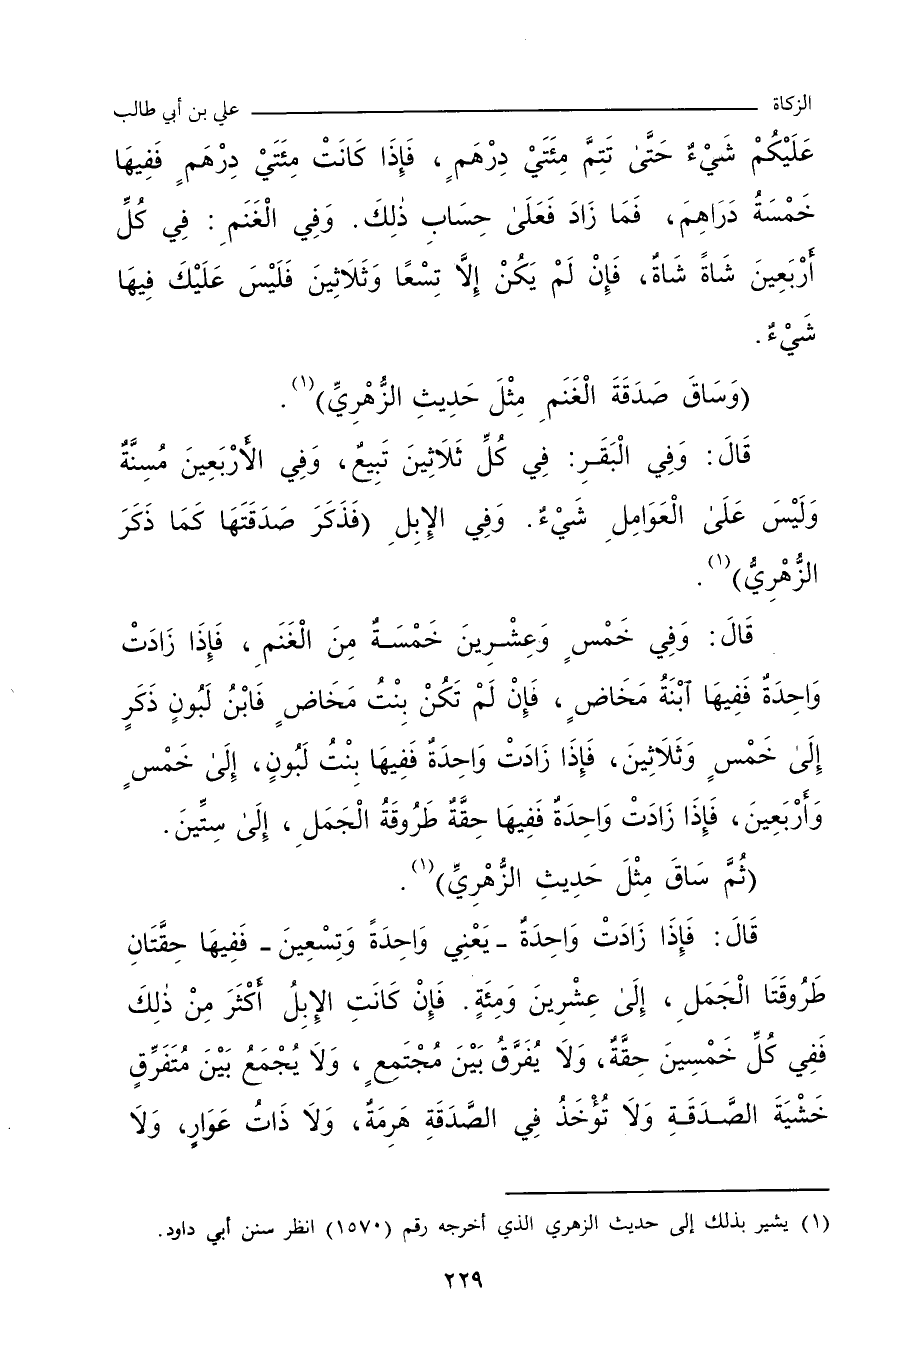 الزكاة علي بن أبي طالب
عَلَيْكُمْ شَيْءٌ حَتَّىٰ تَتِمَّ مِئَتَيْ دِرْهَمٍ، فَإِذَا كَانَتْ مِئَتَيْ دِرْهَمٍ فَفِيهَا
خَمْسَةُ دَرَاهِمَ، فَمَا زَادَ فَعَلَىٰ حِسَابِ ذٰلِكَ. وَفِي الْغَنَمِ: فِي كُلِّ
أَرْبَعِينَ شَاةً شَاةٌ، فَإِنْ لَمْ يَكُنْ إِلَّا تِسْعًا وَثَلَاثِينَ فَلَيْسَ عَلَيْكَ فِيهَا
شَيْءٌ.
(وَسَاقَ صَدَقَةَ الْغَنَمِ مِثْلَ حَدِيثِ الزُّهْرِيِّ)(١).
قَالَ: وَفِي الْبَقَرِ: فِي كُلِّ ثَلَاثِينَ تَبِيعٌ، وَفِي الأَرْبَعِينَ مُسِنَّةٌ
وَلَيْسَ عَلَىٰ الْعَوَامِلِ شَيْءٌ. وَفِي الإِبِلِ (فَذَكَرَ صَدَقَتَهَا كَمَا ذَكَرَ
الزُّهْرِيُّ)(١).
قَالَ: وَفِي خَمْسٍ وَعِشْرِينَ خَمْسَةٌ مِنَ الْغَنَمِ، فَإِذَا زَادَتْ
وَاحِدَةٌ فَفِيهَا ٱبْنَةُ مَخَاضٍ، فَإِنْ لَمْ تَكُنْ بِنْتُ مَخَاضٍ فَابْنُ لَبُونٍ ذَكَرٍ
إِلَىٰ خَمْسٍ وَثَلَاثِينَ، فَإِذَا زَادَتْ وَاحِدَةٌ فَفِيهَا بِنْتُ لَبُونٍ، إِلَىٰ خَمْسٍ
وَأَرْبَعِينَ، فَإِذَا زَادَتْ وَاحِدَةٌ فَفِيهَا حِقَّةٌ طَرُوقَةُ الْجَمَلِ، إِلَىٰ سِتِّينَ.
(ثُمَّ سَاقَ مِثْلَ حَدِيثِ الزُّهْرِيِّ)(١).
قَالَ: فَإِذَا زَادَتْ وَاحِدَةٌ -يَعْنِي وَاحِدَةً وَتِسْعِينَ- فَفِيهَا حِقَّتَانِ
طَرُوقَتَا الْجَمَلِ، إِلَىٰ عِشْرِينَ وَمِئَةٍ. فَإِنْ كَانَتِ الإِبِلُ أَكْثَرَ مِنْ ذٰلِكَ
فَفِي كُلِّ خَمْسِينَ حِقَّةٌ، وَلَا يُفَرَّقُ بَيْنَ مُجْتَمِعٍ، وَلَا يُجْمَعُ بَيْنَ مُتَفَرِّقٍ
خَشْيَةَ الصَّدَقَةِ وَلَا تُؤْخَذُ فِي الصَّدَقَةِ هَرِمَةٌ، وَلَا ذَاتُ عَوَارٍ، وَلَا
(١) يشير بذلك إلى حديث الزهري الذي أخرجه رقم (١٥٧٠) انظر سنن أبي داود.
٢٢٩